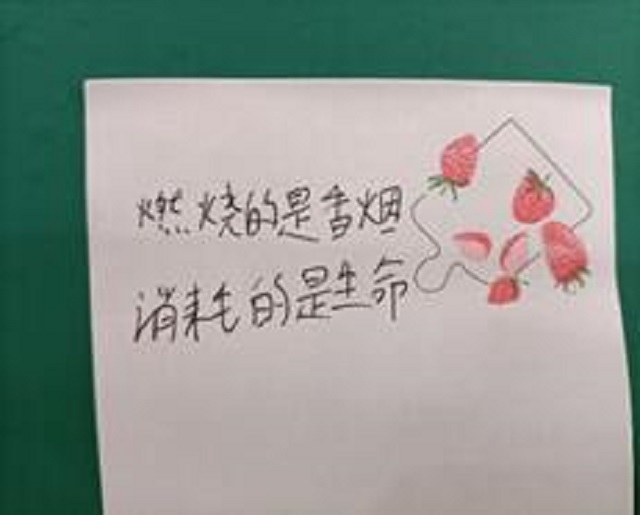 燃烧的是香烟
消耗的是生命